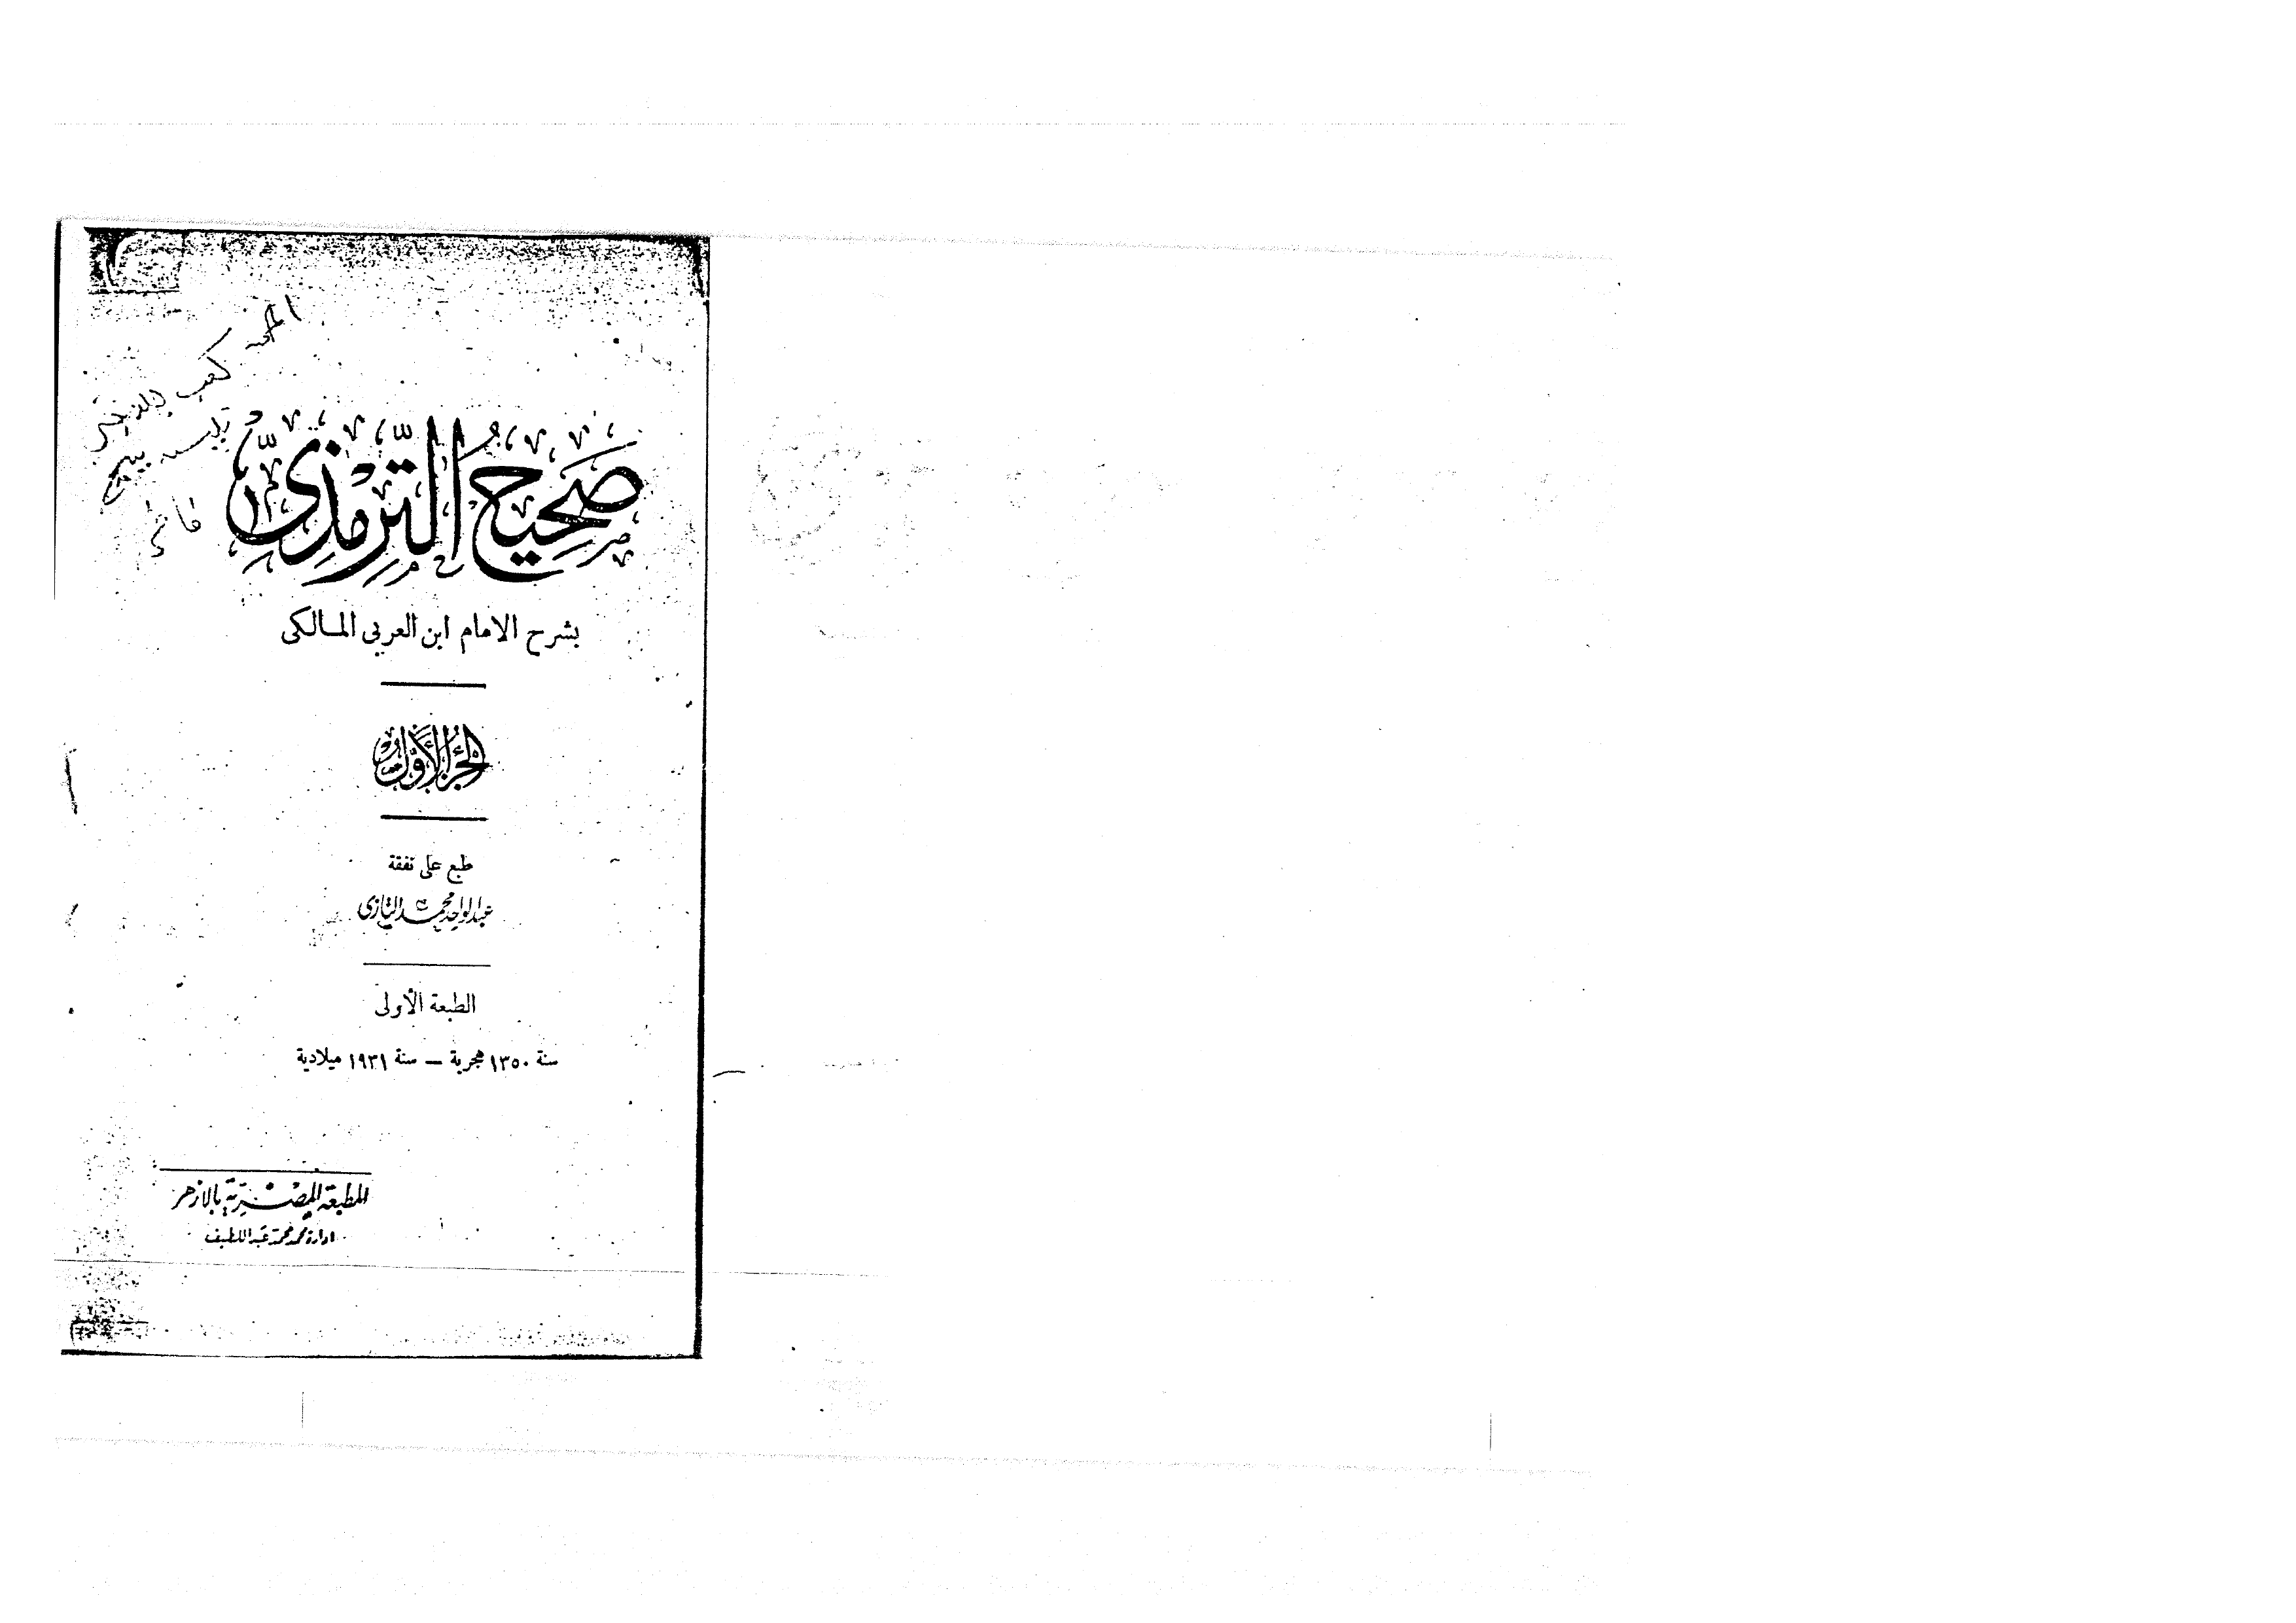 صَحِيحُ التِّرْمِذِيِّ
بشرح الامام ابن العربي المالكى
الجُزْءُ الأَوَّلُ
طبع على نفقة
عبد الواحد محمد التازى
الطبعة الأولى
سنة ١٣٥٠ هجرية — سنة ١٩٣١ ميلادية
المطبعة المصرية بالازهر
ادارة محمد محمد عبد اللطيف